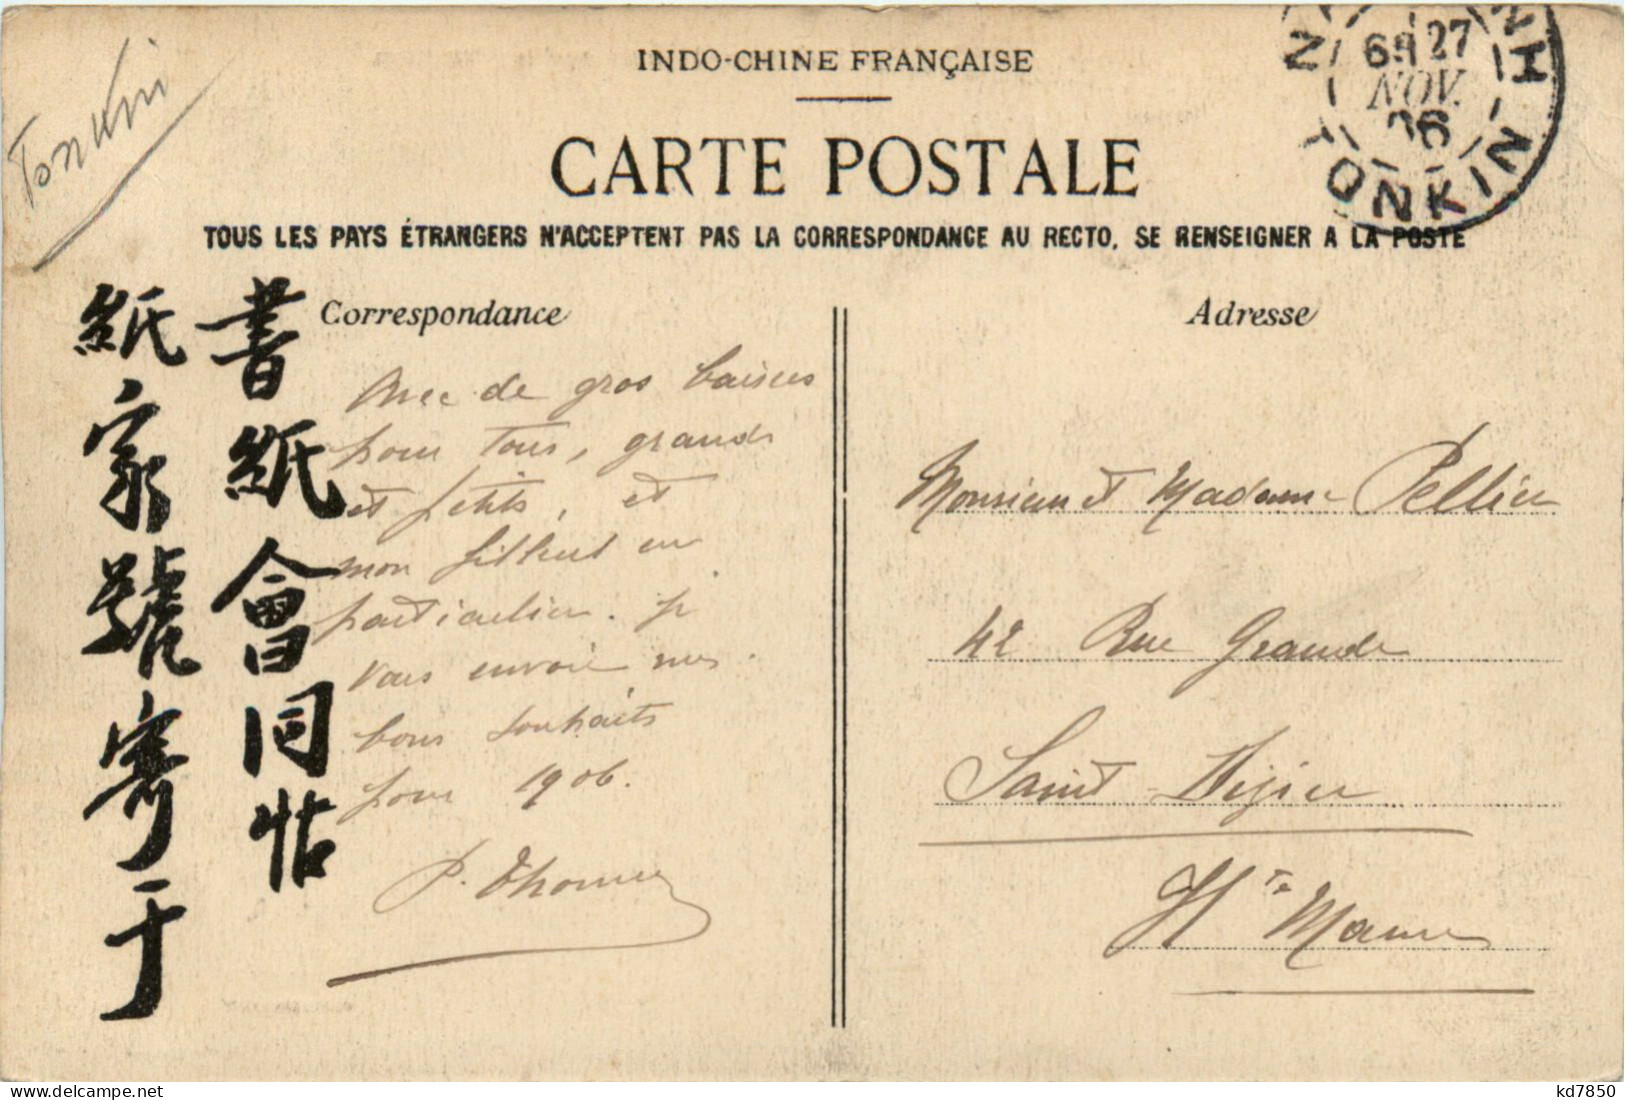 Tonkin
INDO-CHINE FRANÇAISE
CARTE POSTALE
TOUS LES PAYS ÉTRANGERS N'ACCEPTENT PAS LA CORRESPONDANCE AU RECTO, SE RENSEIGNER A LA POSTE
27
NOV.
06
TONKIN
書紙會同帖
紙家號寄于
Correspondance
Avec de gros baisers
pour tous, grands
et petits, et
mon filleul en
particulier. Je
vous envoie mes
bons souhaits
pour 1906.
P. Thomas
Adresse
Monsieur et Madame Pellier
42 Rue Grande
Saint-Dizier
Hte Marne
kd7850